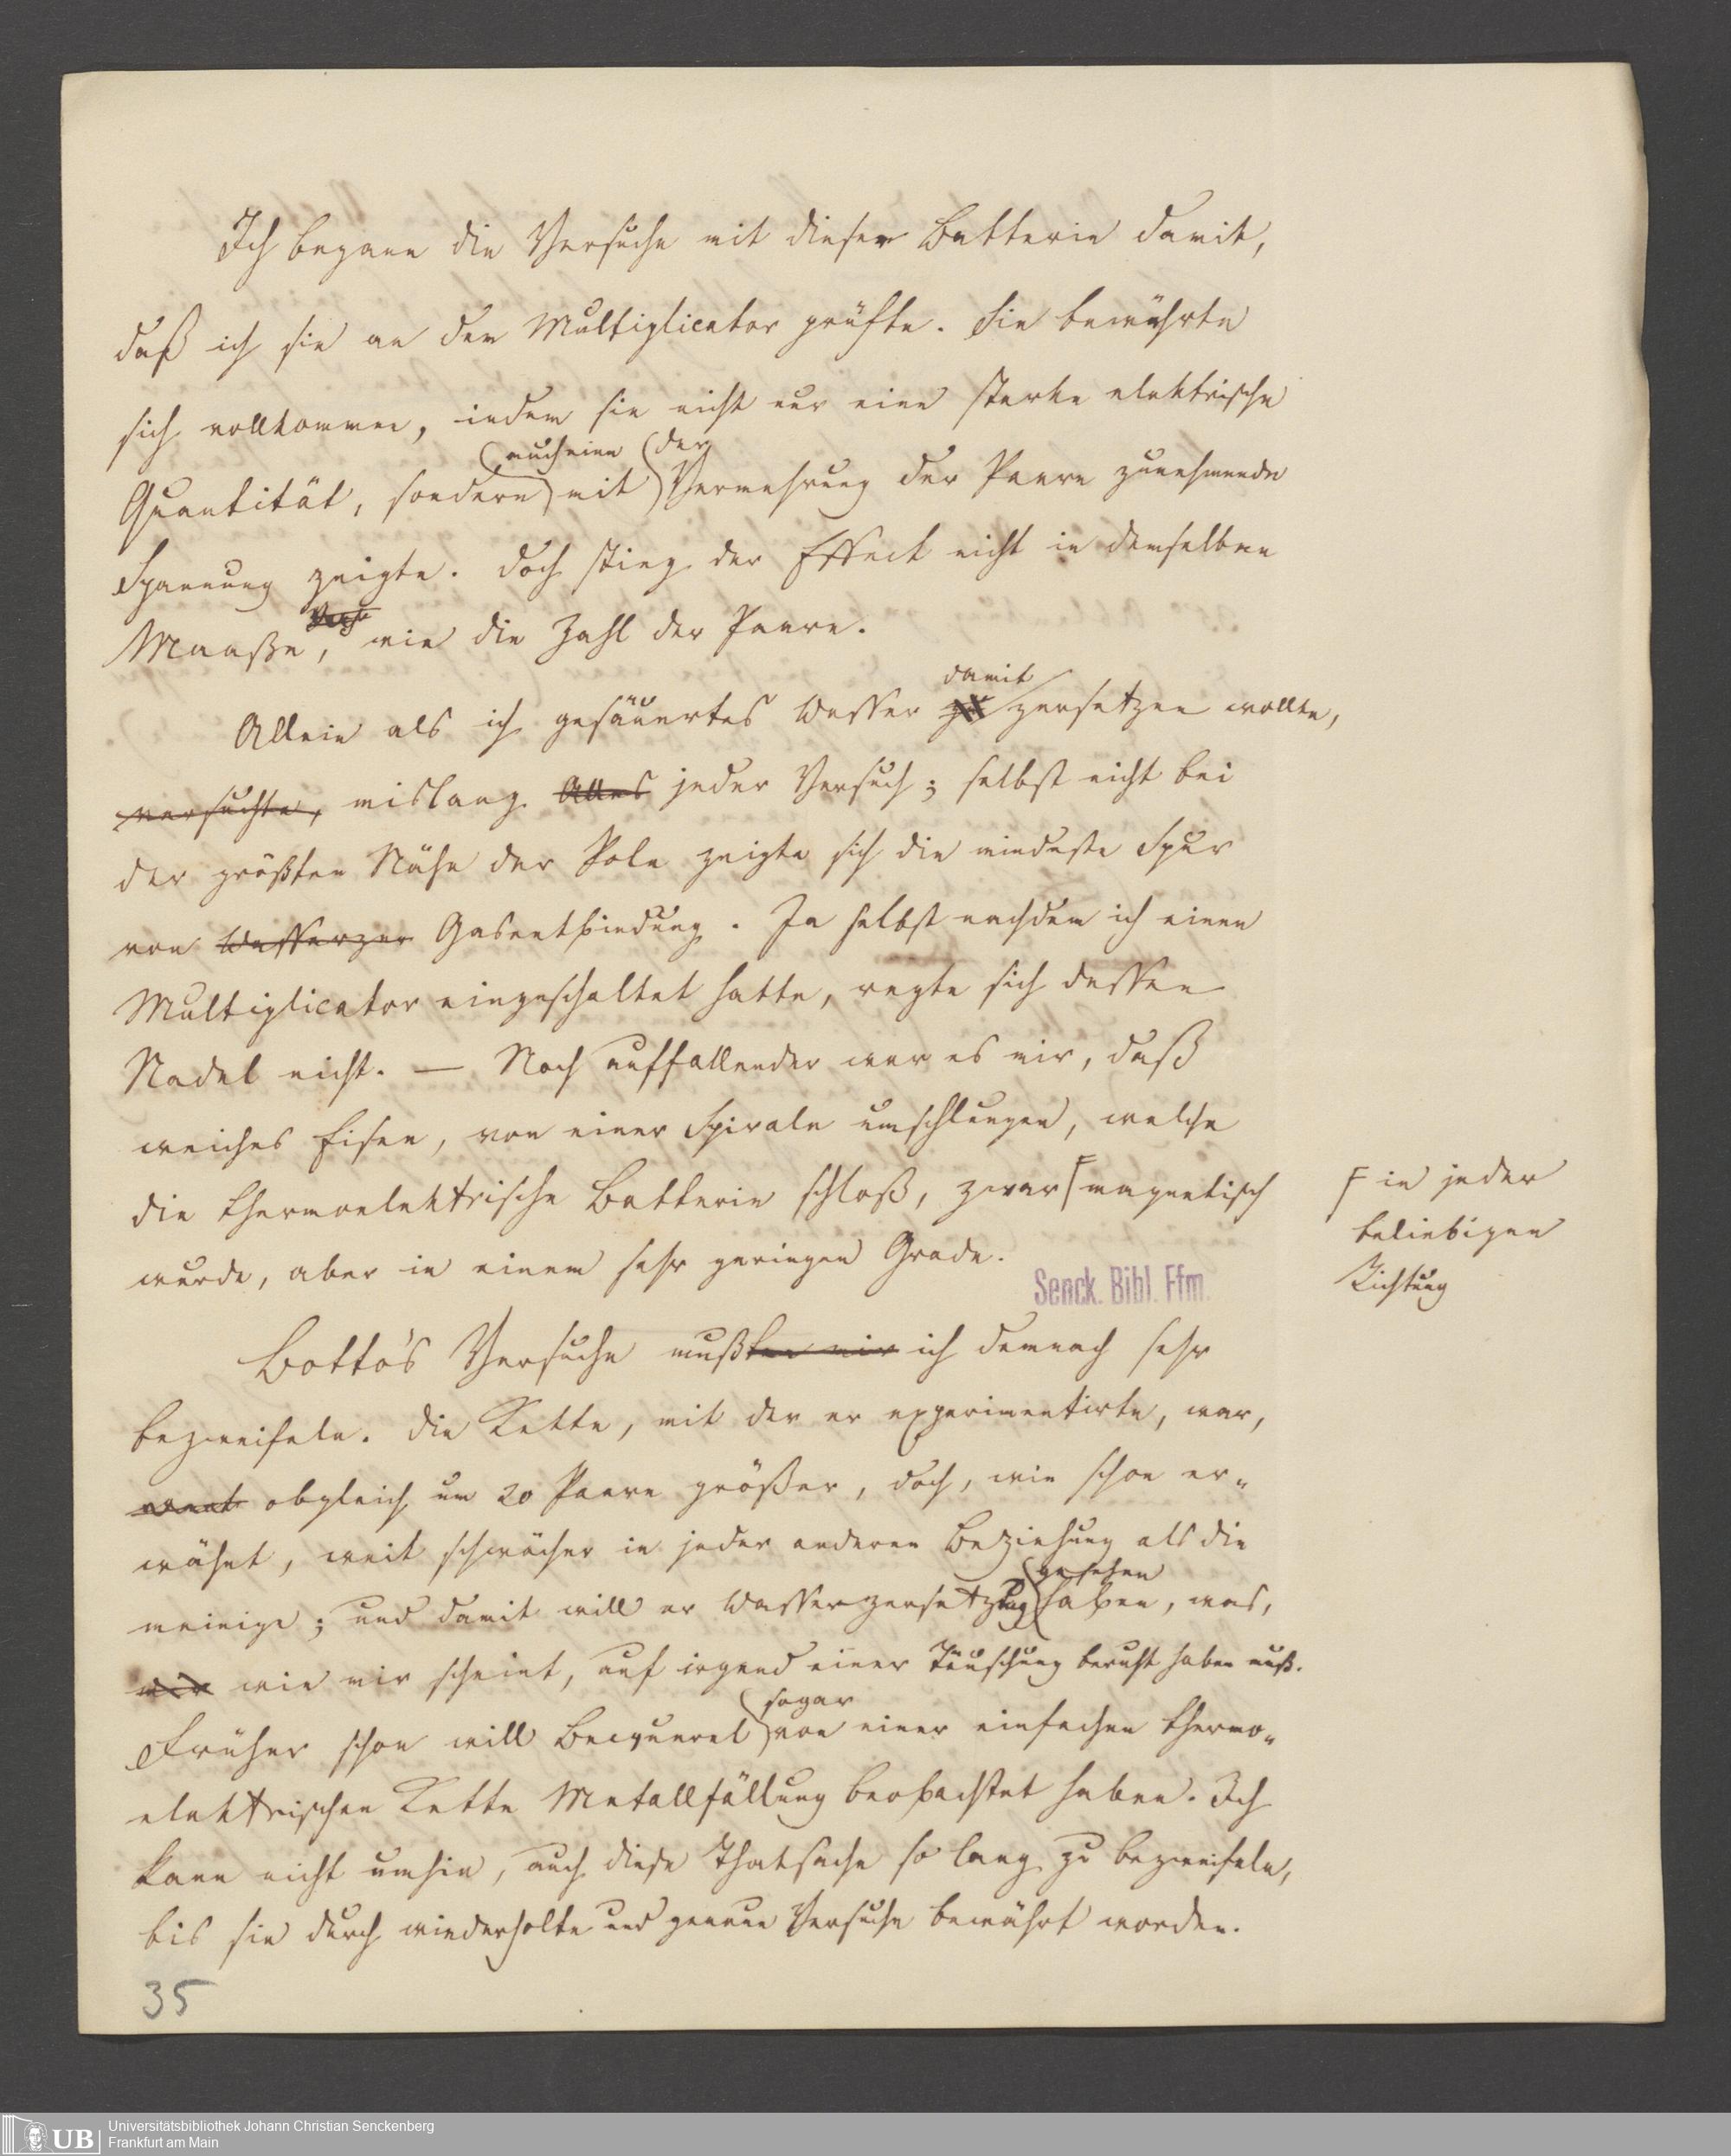 Ich begann die Versuche mit dieser Batterie damit,
daß ich sie an dem Multiplicator prüfte. Sie bewährte
sich vollkommen, indem sie nicht nur eine starke elektrische
auch eine der
Quantität, sondern mit Vermehrung der Paare zunehmende
Spannung zeigte. Doch stieg der Effect nicht in demselben
Maaße, wie die Zahl der Paare.
damit
Allein als ich gesäuertes Wasser zu zersetzen wollte,
versuchte, mislang Alles jeder Versuch; selbst nicht bei
der größten Nähe der Pole zeigte sich die mindeste Spur
von Wasserzer Gasentbindung. Ja selbst nachdem ich einen
Multiplicator eingeschaltet hatte, regte sich dessen
Nadel nicht. — Noch auffallender war es mir, daß
weiches Eisen, von einer Spirale umschlungen, welche
die thermoelektrische Batterie schloß, zwar F magnetisch
F in jeder
beliebigen
Richtung
wurde, aber in einem sehr geringen Grade.
Senck. Bibl. Ffm.
Botto's Versuche mußten mir ich demnach sehr
bezweifeln. Die Kette, mit der er experimentirte, war,
obgleich um 20 Paare größer, doch, wie schon er-
wähnt, weit schwächer in jeder anderen Beziehung als die
gesehen
meinige; und damit will er Wasserzersetzung haben, was,
mir wie mir scheint, auf irgend einer Täuschung beruht haben muß.
sogar
Früher schon will Becquerel von einer einfachen thermo-
elektrischen Kette Metallfällung beobachtet haben. Ich
kann nicht umhin, auch diese Thatsache so lang zu bezweifeln,
bis sie durch wiederholte und genaue Versuche bewährt worden.
35
UB
Universitätsbibliothek Johann Christian Senckenberg
Frankfurt am Main